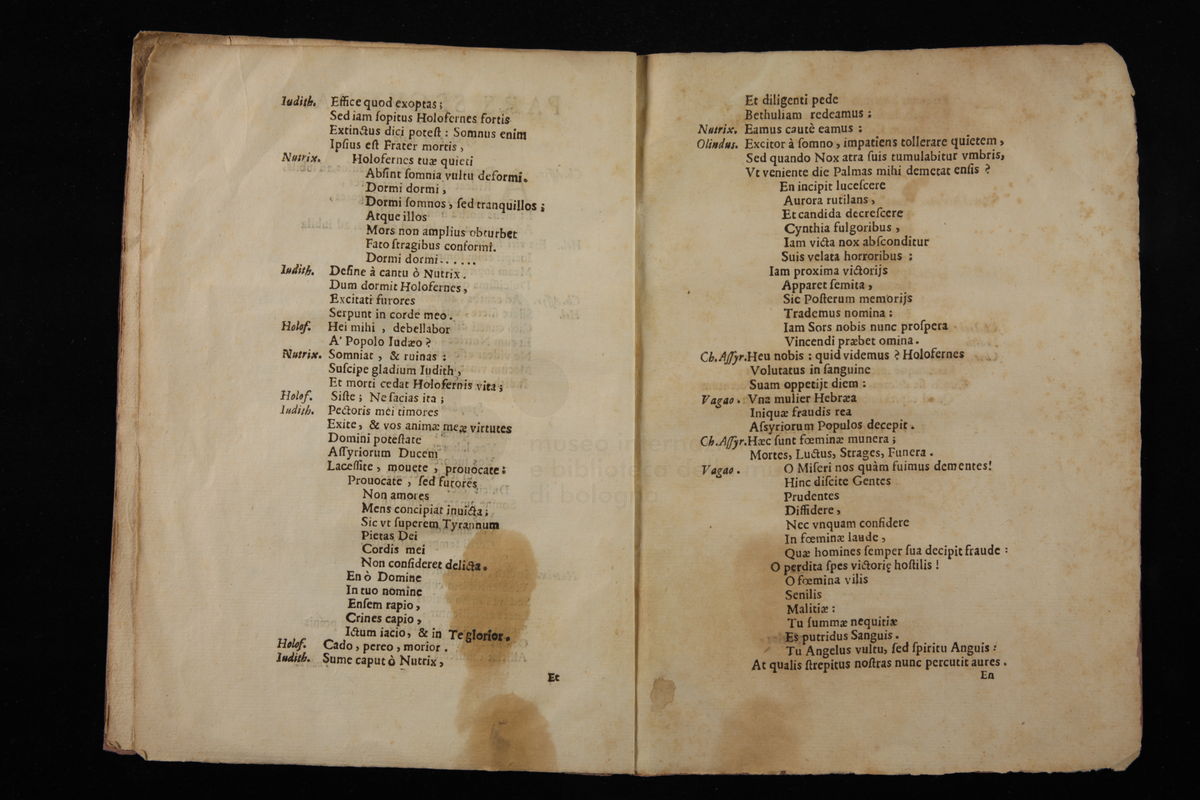 Iudith. Effice quod exoptas;
Sed iam ſopitus Holofernes fortis
Extinctus dici poteſt: Somnus enim
Ipſius eſt Frater mortis,
Nutrix. Holofernes tuæ quieti
Abſint ſomnia vultu deformi.
Dormi dormi,
Dormi ſomnos, ſed tranquillos;
Atque illos
Mors non amplius obturbet
Fato ſtragibus conformi.
Dormi dormi......
Iudith. Deſine à cantu ò Nutrix.
Dum dormit Holofernes,
Excitati furores
Serpunt in corde meo.
Holof. Hei mihi, debellabor
A' Popolo Iudæo?
Nutrix. Somniat, & ruinas:
Suſcipe gladium Iudith,
Et morti cedat Holofernis vita;
Holof. Siſte; Ne facias ita;
Iudith. Pectoris mei timores
Exite, & vos animæ meæ virtutes
Domini poteſtate
Aſſyriorum Ducem
Laceſſite, mouete, prouocate:
Prouocate, ſed furores
Non amores
Mens concipiat inuicta;
Sic vt ſuperem Tyrannum
Pietas Dei
Cordis mei
Non conſideret delicta.
En ò Domine
In tuo nomine
Enſem rapio,
Crines capio,
Ictum iacio, & in Te glorior.
Holof. Cado, pereo, morior.
Iudith. Sume caput ò Nutrix,
Et
Et diligenti pede
Bethuliam redeamus:
Nutrix. Eamus cautè eamus:
Olindus. Excitor à ſomno, impatiens tollerare quietem,
Sed quando Nox atra ſuis tumulabitur vmbris,
Vt veniente die Palmas mihi demetat enſis?
En incipit luceſcere
Aurora rutilans,
Et candida decreſcere
Cynthia fulgoribus,
Iam victa nox abſconditur
Suis velata horroribus:
Iam proxima victorijs
Apparet ſemita,
Sic Poſterum memorijs
Trademus nomina:
Iam Sors nobis nunc proſpera
Vincendi præbet omina.
Ch. Aſſyr. Heu nobis: quid videmus? Holofernes
Volutatus in ſanguine
Suam oppetijt diem:
Vagao. Vna mulier Hebræa
Iniquæ fraudis rea
Aſsyriorum Populos decepit.
Ch. Aſſyr. Hæc ſunt fœminæ munera;
Mortes, Luctus, Strages, Funera.
Vagao. O Miſeri nos quàm fuimus dementes!
Hinc diſcite Gentes
Prudentes
Diffidere,
Nec vnquam confidere
In fœminæ laude,
Quæ homines ſemper ſua decipit fraude:
O perdita ſpes victorię hoſtilis!
O fœmina vilis
Senilis
Malitiæ:
Tu ſummæ nequitiæ
Es putridus Sanguis.
Tu Angelus vultu, ſed ſpiritu Anguis:
At qualis ſtrepitus noſtras nunc percutit aures.
En
museo interna
e biblioteca de mu
di bologna